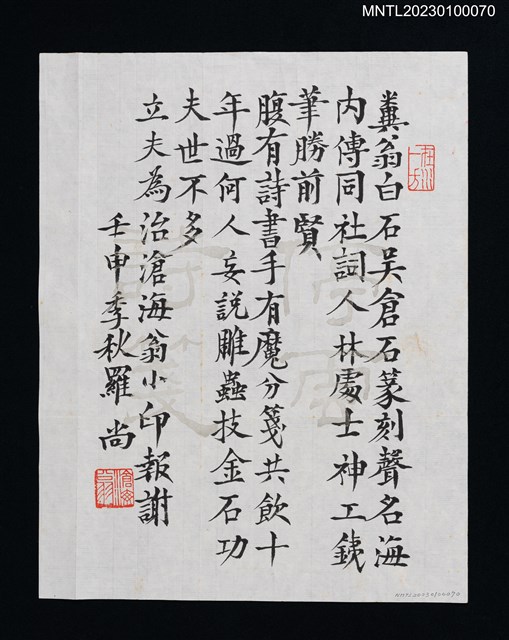 MNTL20230100070
糞翁白石吳倉石篆刻聲名海
内傳同社詞人林處士神工銕
筆勝前賢
腹有詩書手有魔分箋共飲十
年過何人妄説雕蟲技金石功
夫世不多
立夫為治滄海翁小印報謝
壬申季秋羅尚
滄海
MNTL20230100070